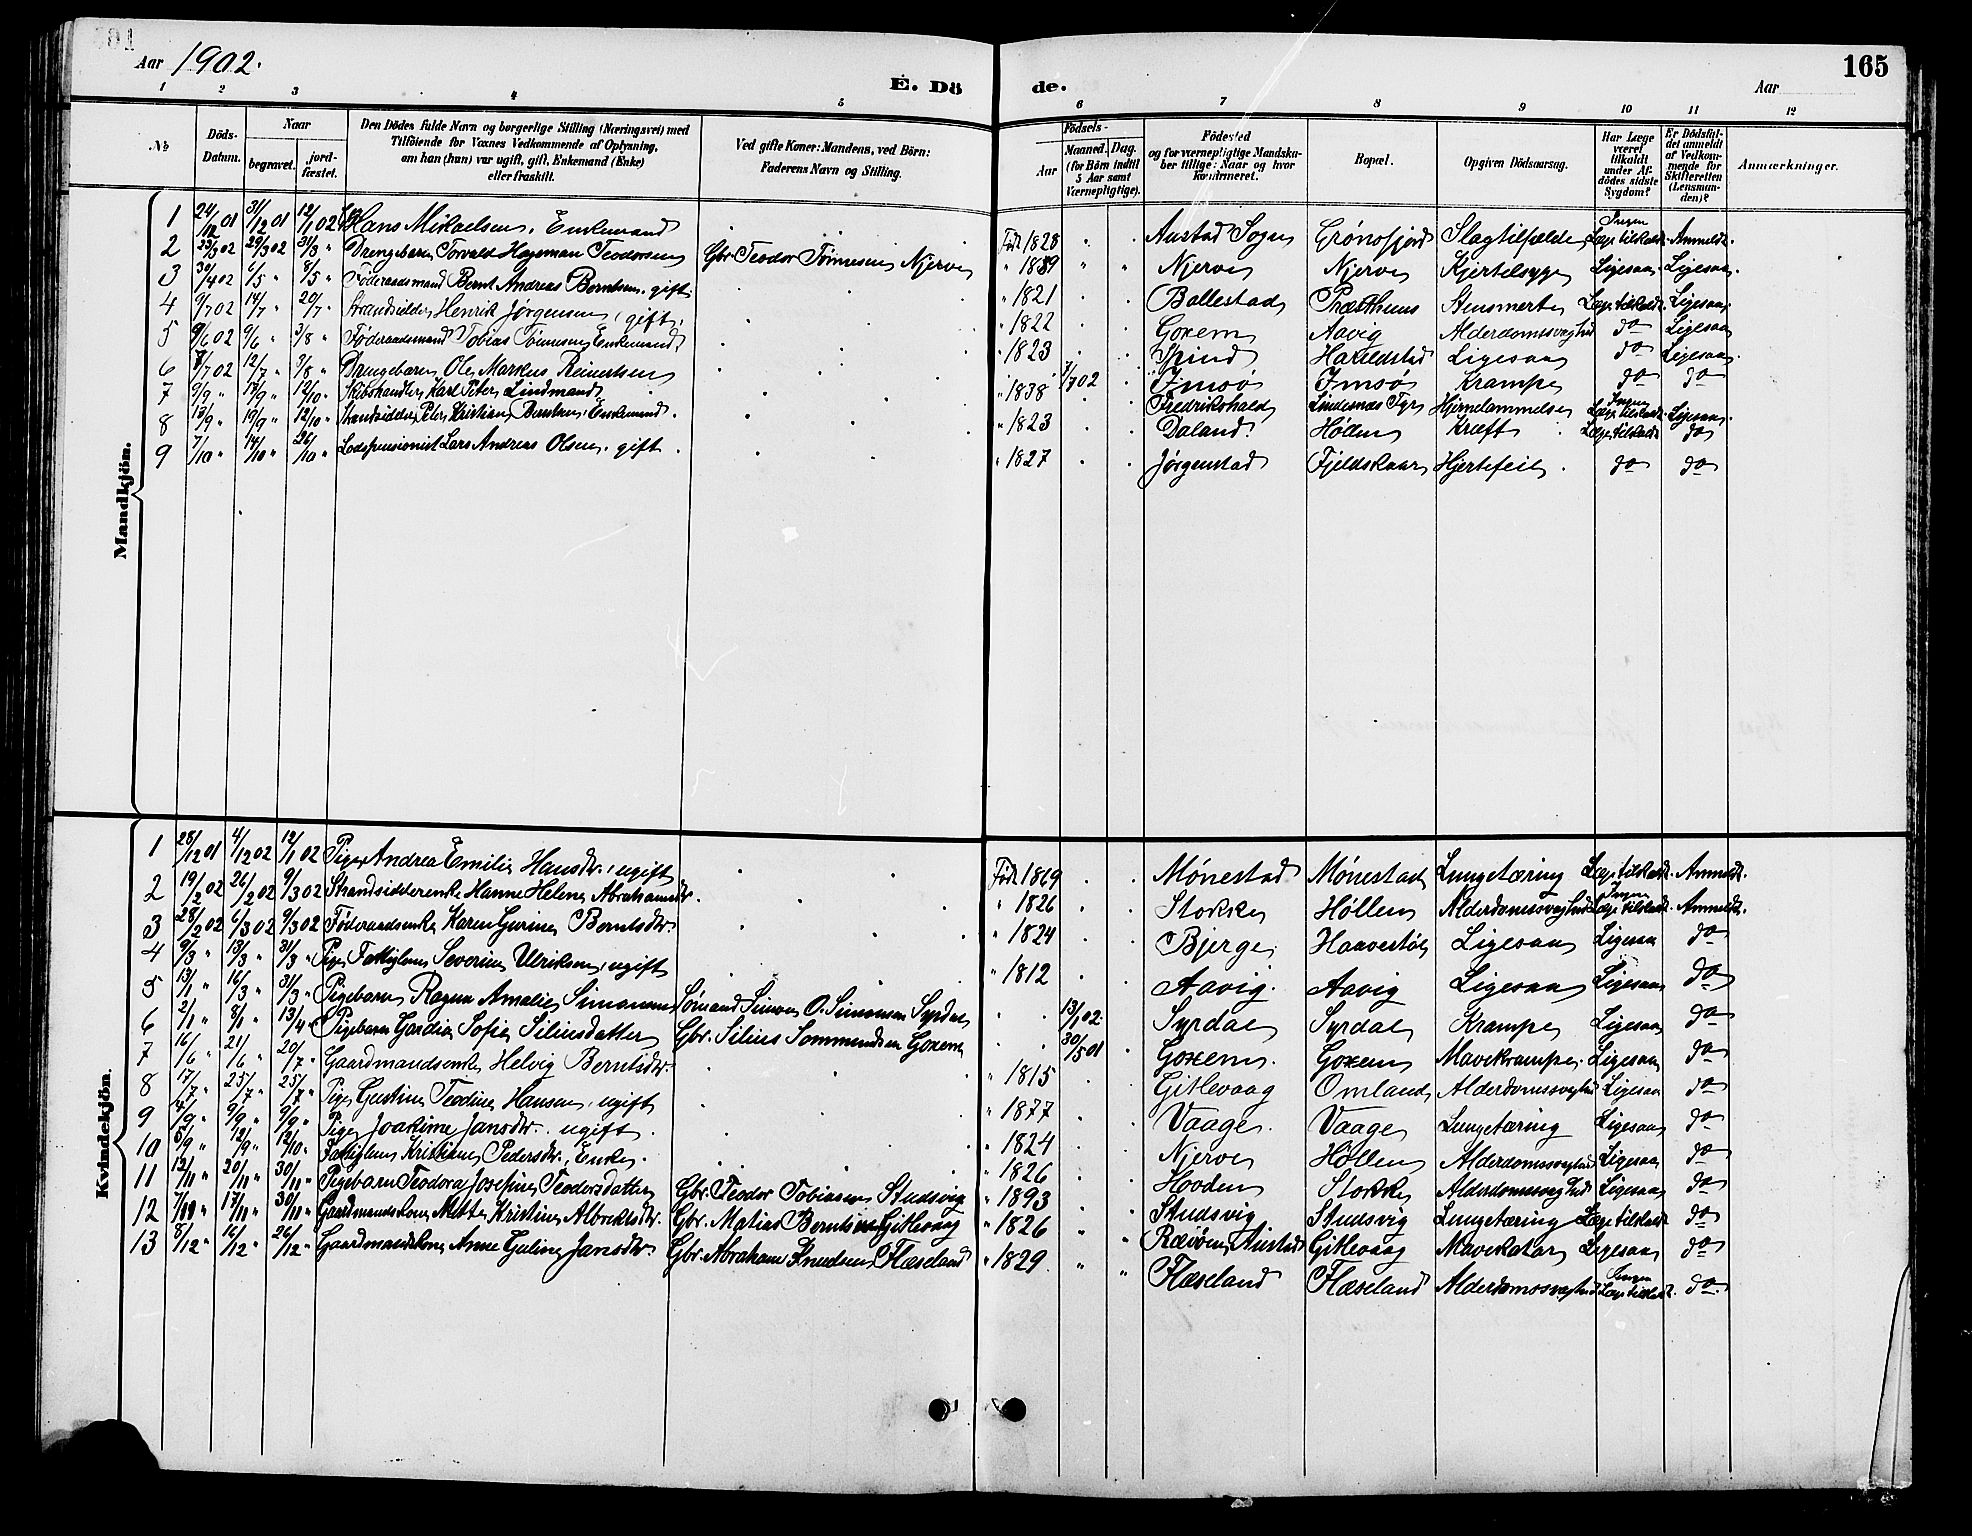 Aar 1902.
E. Dö de.
Aar
165
1 2 3 4 5 6 7 8 9 10 11 12
No
Döds-Datum.
Naar
begravet.
jord-fæstet.
Den Dödes fulde Navn og borgerlige Stilling (Næringsvei) med
Tilföiende for Voxnes Vedkommende af Oplysning,
om han (hun) var ugift, gift, Enkemand (Enke)
eller fraskilt.
Ved gifte Koner: Mandens, ved Börn:
Faderens Navn og Stilling.
Födsels-
Aar
Maaned. Dag.
(for Börn indtil
5 Aar samt
Værnepligtige).
Födested
og for værnepligtige Mandska-
ber tillige: Naar og hvor
konfirmeret.
Bopæl.
Opgiven Dödsaarsag.
Har Læge
været
tilkaldt
under Af-
dödes sidste
Sygdom?
Er Dödsfal-
det anmeldt
af Vedkom-
mende for
Skifteretten
(Lensman-
den)?
Anmærkninger.
Mandkjön.
1 24/12 01 31/12 01 12/1 02 Hans Mikaelsen, Enkemand Född 1828 Austad Sogn Grønsfjord Slagtilfælde Ingen Læge tilkaldt Anmeldt.
2 23/3 02 29/3 02 31/3 " Drengebarn Torvald Hageman Teodorsen Gbr. Teodor Tönnesen Njerve " 1889 Njerve Njerve Kjertelsyge Ligesaa Ligesaa.
3 30/4 02 6/5 " 8/5 " Föderaadsmand Bernt Andreas Berntsen, gift " 1821 Ballestad Præsthuus Stensmerte Læge tilkaldt Ligesaa
4 9/7 02 14/7 " 20/7 " Strandsidder Henrik Jørgensen, gift, " 1822 Goxem Aavig Alderdomssvaghed do Ligesaa
5 9/6 02 9/6 " 3/8 " Föderaadsmand Tobias Tönnesen, Enkemand, " 1823 Spind Haraldstad Ligesaa do Ligesaa.
6 8/7 02 12/7 " 3/8 " Drengebarn Ole Markus Reinertsen 7/7 02 Imsø Imsø Krampe do do
7 9/9 " 14/9 " 12/10 " Skibshandler Karl Peter Lindmand " 1838 Fredrikshald Lindesnæs Fyr Hjernelammelse Ingen Læge tilkaldt Ligesaa.
8 13/9 " 19/9 " 12/10 " Strandsidder Peter Kristian Berntsen, Enkemand. " 1823 Daland. Høllen Kræft Læge tilkaldt do
9 7/10 " 14/10 " 26/10 " Lodspensionist Lars Andreas Olsen, gift. " 1827 Jørgenstad Fjeldskaar Hjertefeil do do
Kvindekjön.
1 28/12 01 4/12 02 12/1 02 Pige Andrea Emilie Hansdtr., ugift Född 1869 Mønestad Mønestad Lungetæring Læge tilkaldt. Anmeldt.
2 19/2 02 26/2 02 9/3 02 Strandsidderenke Hanne Helene Abrahamsdtr. " 1826 Stokke Høllen Alderdomssvaghed Ingen Læge tilkaldt. Anmeldt.
3 28/2 02 6/3 02 9/3 02 Föderaadsenke Karen Gurine Berntsdtr. " 1824 Bjerge Haavestøl Ligesaa Ligesaa do
4 9/3 " 13/3 " 31/3 " Pige Fattiglem Severine Ulriksen, ugift " 1812 Aavig. Aavig Ligesaa Ligesaa do
5 13/1 " 16/3 " 31/3 " Pigebarn Ragna Amalie Simonsen Sømand Simon O. Simonsen Syrdal 13/1 02. Syrdal Syrdal Krampe Ligesaa do
6 2/1 " 8/1 " 13/4 " Pigebarn Gardia Sofie Siliusdatter Gbr. Silius Sommundsen Goxem 30/5 01 Goxem. Goxem Mavekrampe. Ligesaa do
7 16/6 " 21/6 " 20/7 " Gaardmandsenke Helvig Berntsdtr. " 1815 Gitlevaag Omland Alderdomssvaghed Ligesaa do
8 17/7 " 25/7 " 25/7 " Pige Gustine Teodine Hansen, ugift " 1877 Vaage. Vaage Lungetæring Ligesaa do
9 4/9 " 9/9 " 9/9 " Pige Joakime Jansdtr. ugift. " 1824 Njerve Høllen Alderdomssvaghed Ligesaa do
10 5/9 " 12/9 " 12/10 " Fattiglem Kristiane Pedersdtr., Enke. " 1826 Hovden Stokke Alderdomssvaghed Ligesaa do
11 13/11 " 20/11 " 30/11 " Pigebarn Teodora Josefine Teodorsdatter Gbr. Teodor Tobiassen Studsvig " 1893 Studsvig Studsvig Lungetæring Læge tilkaldt do
12 7/11 " 17/11 " 30/11 " Gaardmandskone Mette Kristine Albrektsdtr. Gbr. Matias Berntsen Gitlevaag " 1826 Røiven, Austad Gitlevaag Mavekatar Ligesaa do
13 8/12 " 16/12 " 26/12 " Gaardmandskone Anne Guline Jansdtr. Gbr. Abraham Knudsen, Flæseland " 1829 Flæseland Flæseland Alderdomssvaghed Ingen Læge tilkaldt. do.